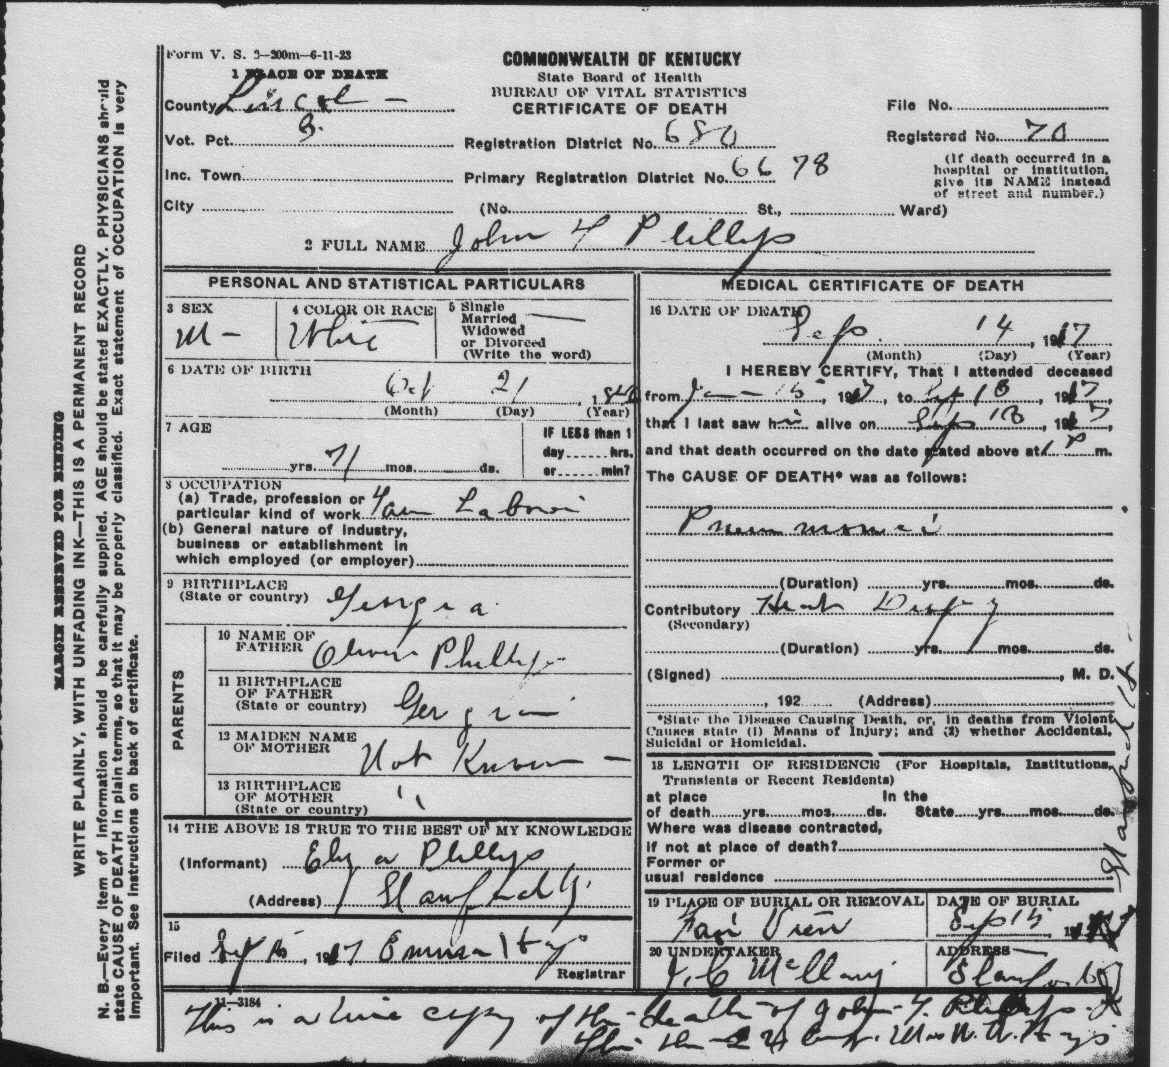 Form V. S. 3—300m—6-11-23
COMMONWEALTH OF KENTUCKY
State Board of Health
BUREAU OF VITAL STATISTICS
CERTIFICATE OF DEATH
1 PLACE OF DEATH
County Lincoln
Vot. Pct. 3.
Inc. Town
City
Registration District No. 680
Primary Registration District No. 6678
(No. St., Ward)
File No.
Registered No. 70
(If death occurred in a
hospital or institution,
give its NAME instead
of street and number.)
2 FULL NAME John F Phillips
PERSONAL AND STATISTICAL PARTICULARS
3 SEX
M—
4 COLOR OR RACE
White
5 Single
Married
Widowed
or Divorced
(Write the word)
6 DATE OF BIRTH
Oct 21
(Month) (Day) (Year)
7 AGE
yrs. 71 mos. ds.
IF LESS than 1
day hrs.
or min?
8 OCCUPATION
(a) Trade, profession or
particular kind of work Farm Labor
(b) General nature of industry,
business or establishment in
which employed (or employer)
9 BIRTHPLACE
(State or country) Georgia
PARENTS
10 NAME OF
FATHER Oliver Phillips
11 BIRTHPLACE
OF FATHER
(State or country) Georgia
12 MAIDEN NAME
OF MOTHER Not Known
13 BIRTHPLACE
OF MOTHER
(State or country) "
14 THE ABOVE IS TRUE TO THE BEST OF MY KNOWLEDGE
(Informant) Phillips
(Address) Stanford Ky.
15
Filed Sep 15, 1917 Emma Hays
Registrar
11—3184
MEDICAL CERTIFICATE OF DEATH
16 DATE OF DEATH
Sep. 14, 1917
(Month) (Day) (Year)
I HEREBY CERTIFY, That I attended deceased
from Jan 15, 1917, to Sep 13, 1917,
that I last saw him alive on Sep 13, 1917,
and that death occurred on the date stated above at 1 P m.
The CAUSE OF DEATH* was as follows:
Pneumonia
(Duration) yrs. mos. ds.
Contributory Heart Dropsy
(Secondary)
(Duration) yrs. mos. ds.
(Signed) , M. D.
, 192 (Address)
*State the Disease Causing Death, or, in deaths from Violent
Causes state (1) Means of Injury; and (2) whether Accidental,
Suicidal or Homicidal.
18 LENGTH OF RESIDENCE (For Hospitals, Institutions,
Transients or Recent Residents)
at place In the
of death yrs. mos. ds. State yrs. mos. ds.
Where was disease contracted,
if not at place of death?
Former or
usual residence
19 PLACE OF BURIAL OR REMOVAL
Fair View
DATE OF BURIAL
Sep 15, 1917
20 UNDERTAKER
J. C. McClary
ADDRESS
Stanford Ky
This is a true copy of the death of John F. Phillips
MARGIN RESERVED FOR BINDING
WRITE PLAINLY, WITH UNFADING INK—THIS IS A PERMANENT RECORD
N. B.—Every item of information should be carefully supplied. AGE should be stated EXACTLY. PHYSICIANS should
state CAUSE OF DEATH in plain terms, so that it may be properly classified. Exact statement of OCCUPATION is very
important. See instructions on back of certificate.